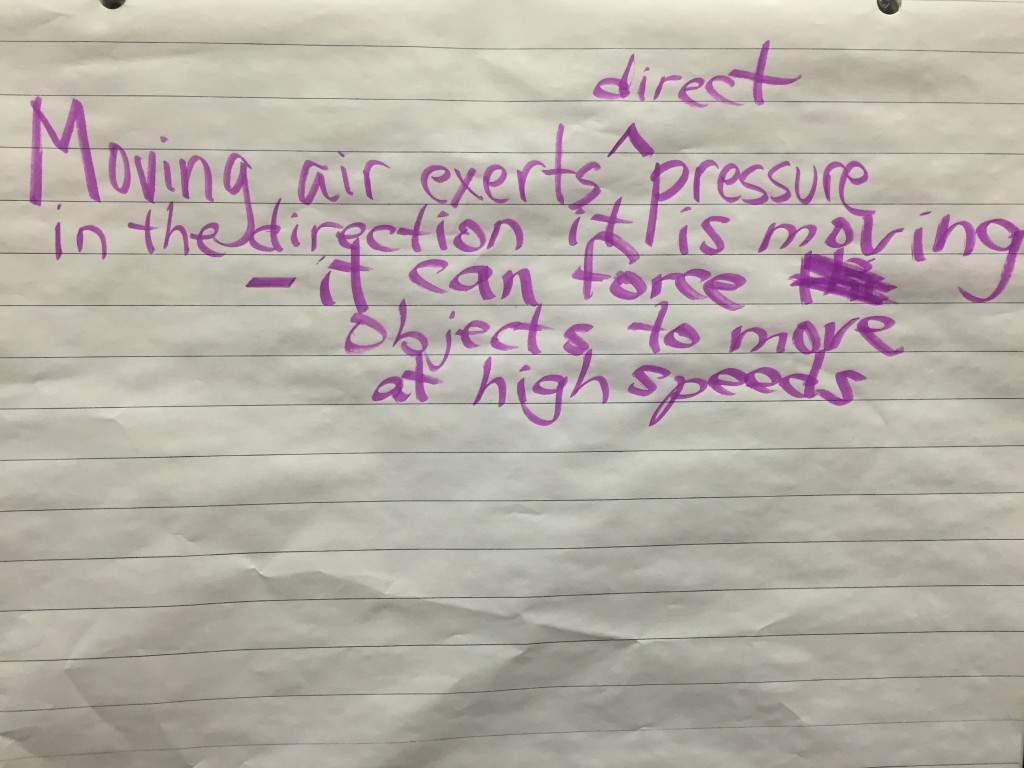 direct
Moving air exerts ^ pressure
in the direction it is moving
- it can force
objects to move
at high speeds